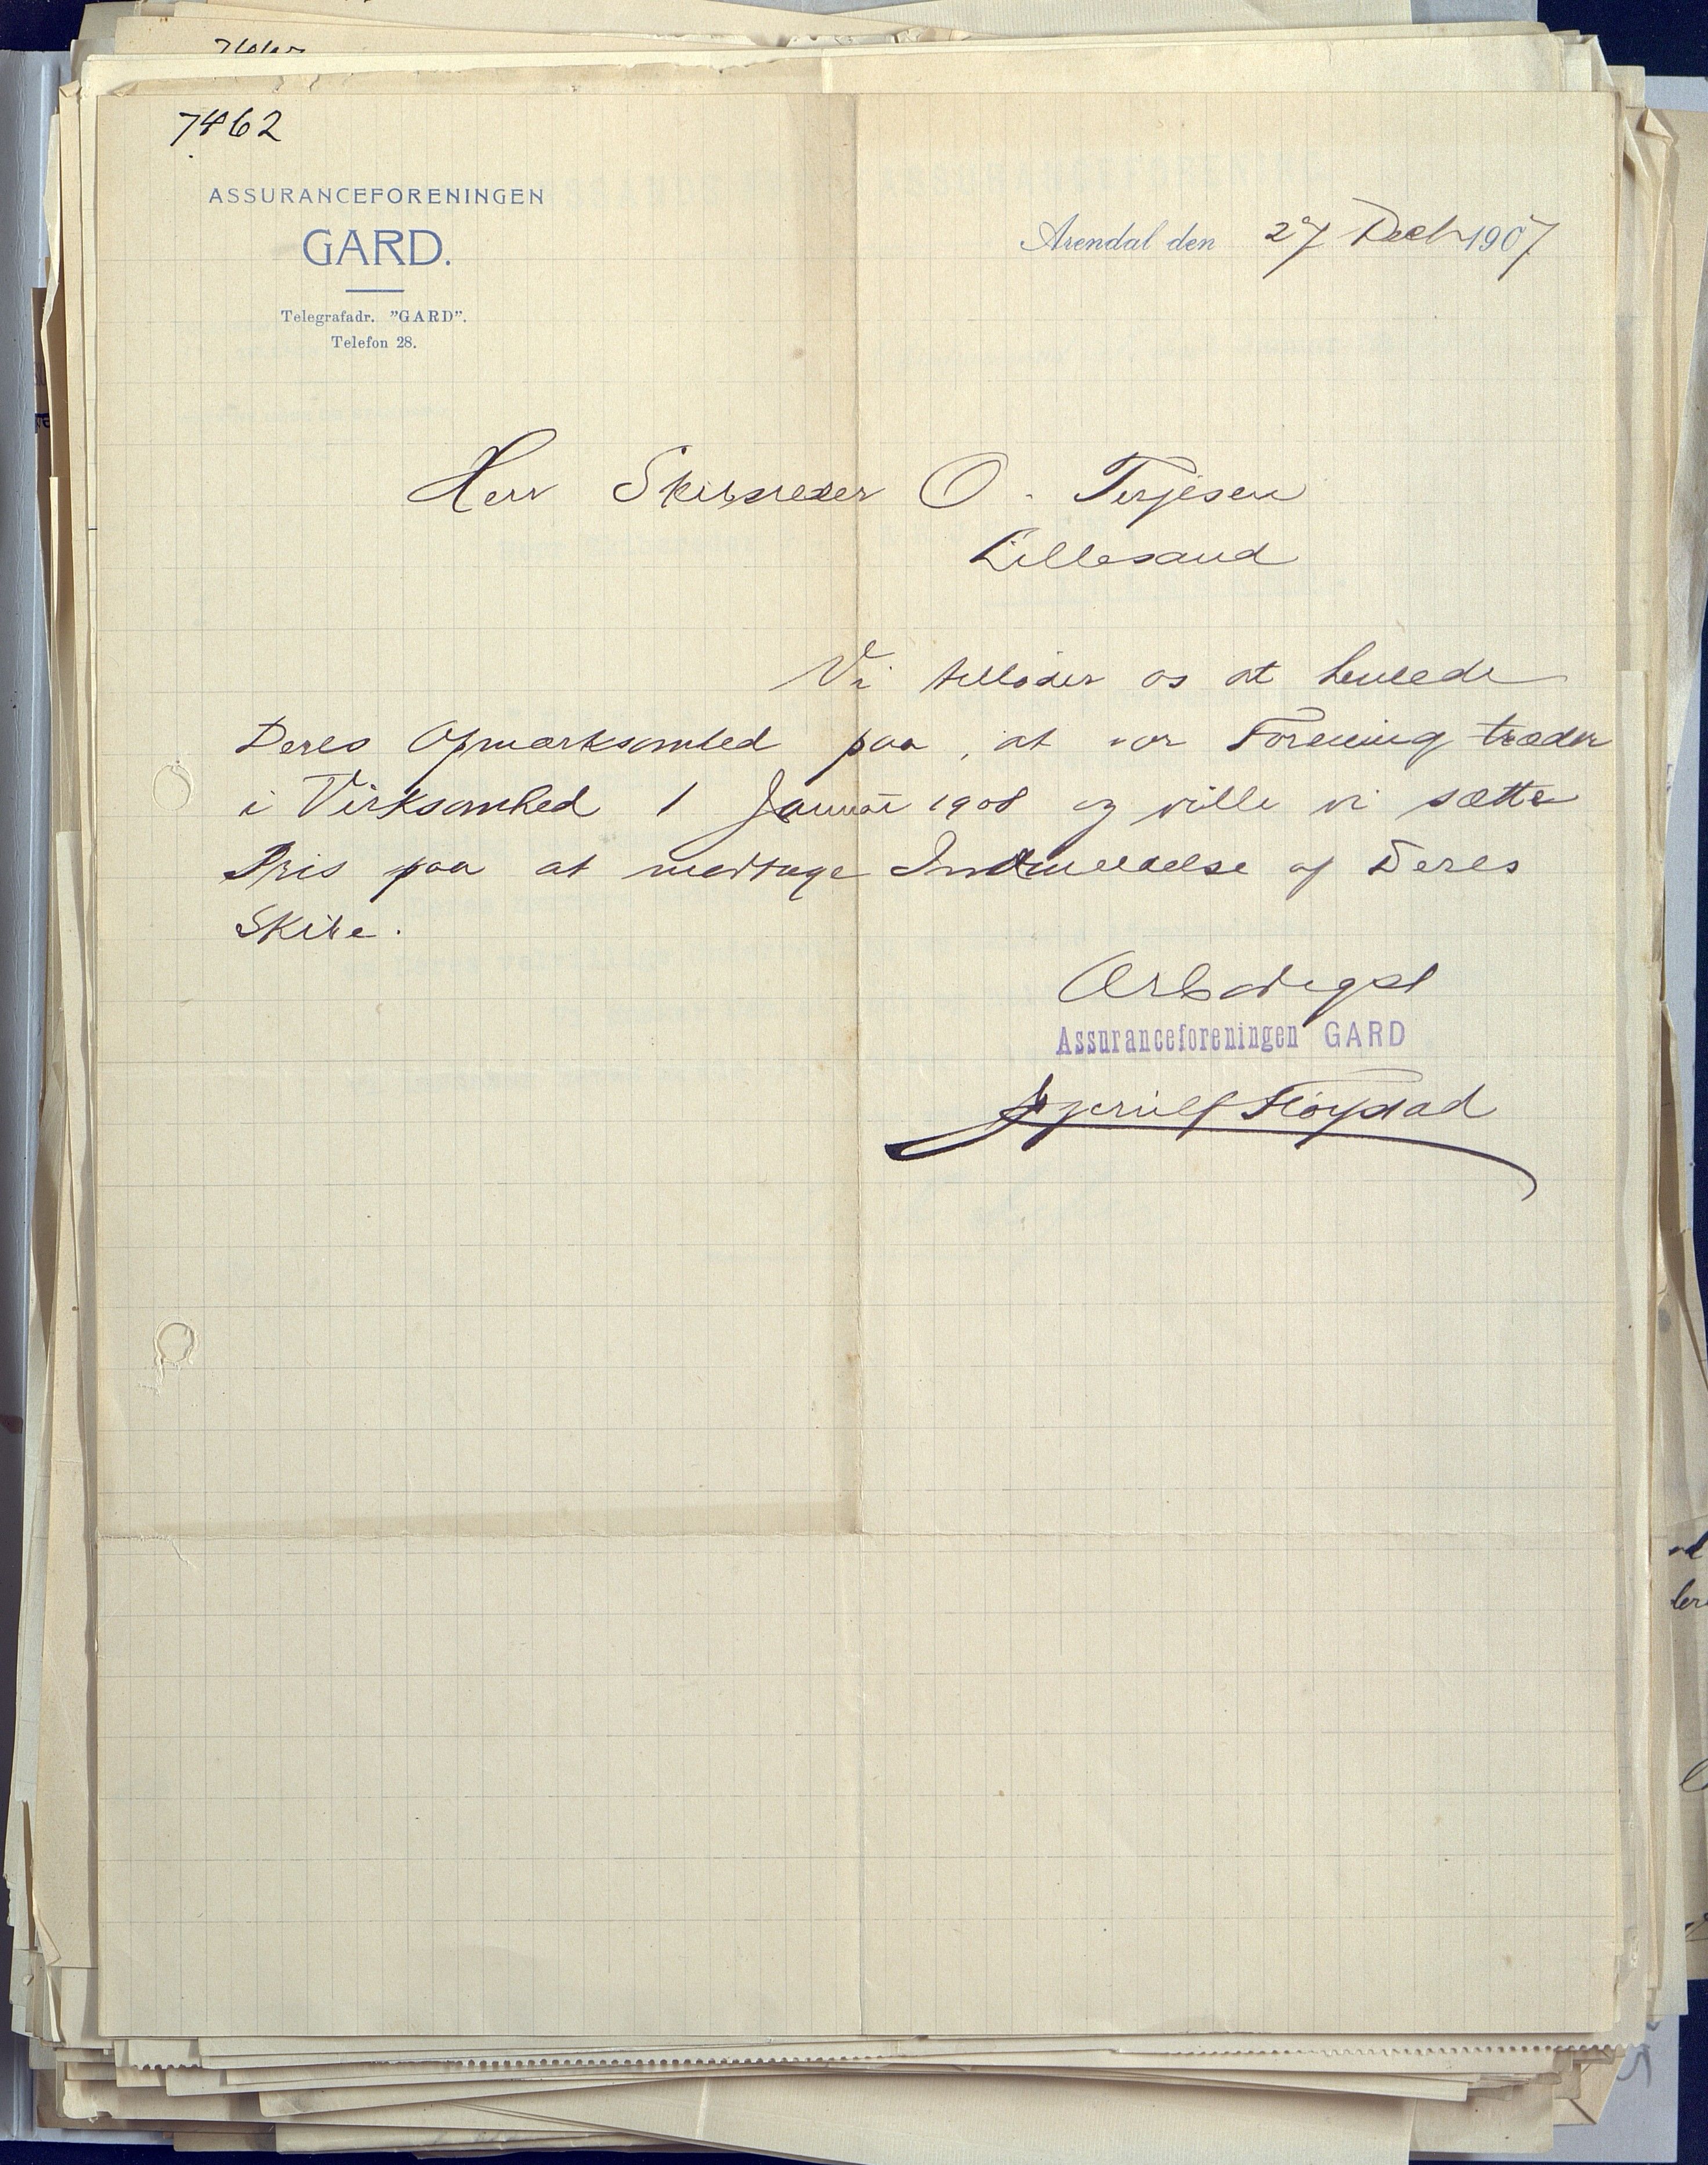 7462
ASSURANCEFORENINGEN
GARD.
Telegrafadr. "GARD".
Telefon 28.
Arendal den 27 Decbr 1907
Herr Skibsreder O. Terjesen
Lillesand
Vi tillader os at henlede
Deres Opmærksomhed paa, at vor Forening træder
i Virksomhed 1 Januar 1908 og vilde vi sætte
Pris paa at modtage Indmeldelse af Deres
Skibe.
Ærbødigst
Assuranceforeningen GARD
Gjerulf Fløystad